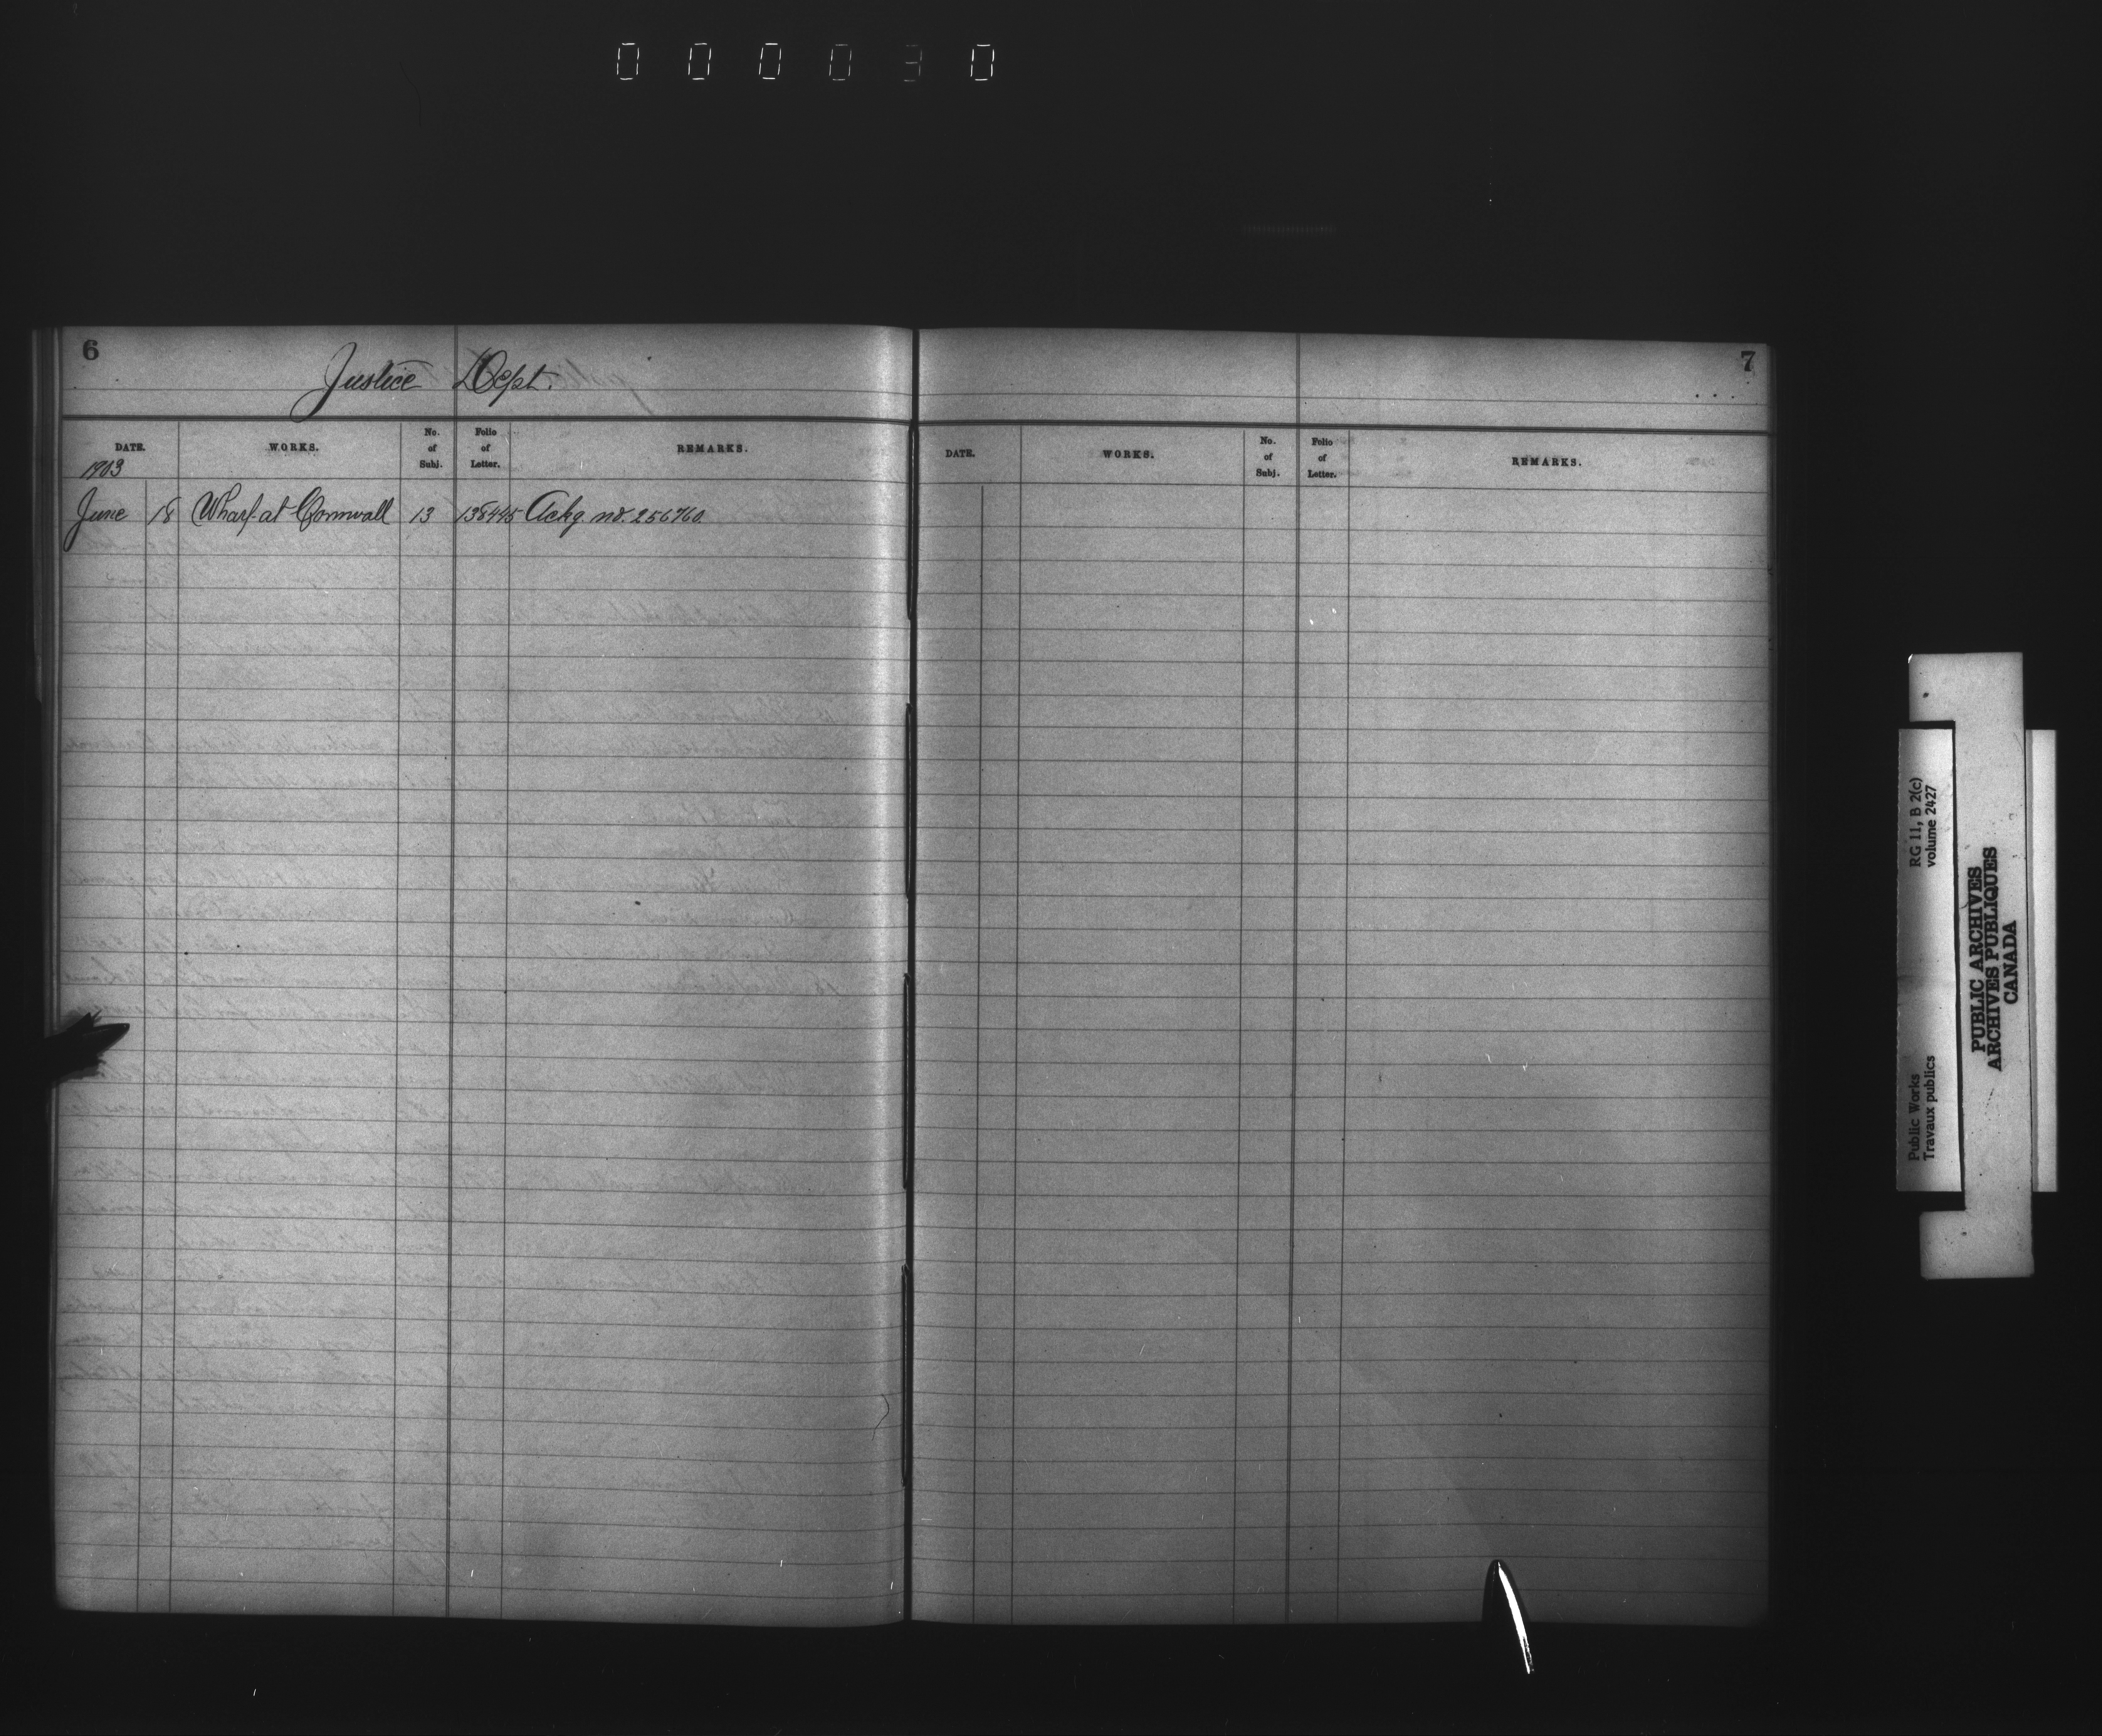 000030
6
Justice Dept.
DATE. WORKS. No. of Subj. Folio of Letter. REMARKS.
1903
June 18 Wharf at Cornwall 13 138445 Ackg. no. 256760.
7
DATE. WORKS. No. of Subj. Folio of Letter. REMARKS.
Public Works RG 11, B 2(c)
Travaux publics volume 2427
PUBLIC ARCHIVES
ARCHIVES PUBLIQUES
CANADA